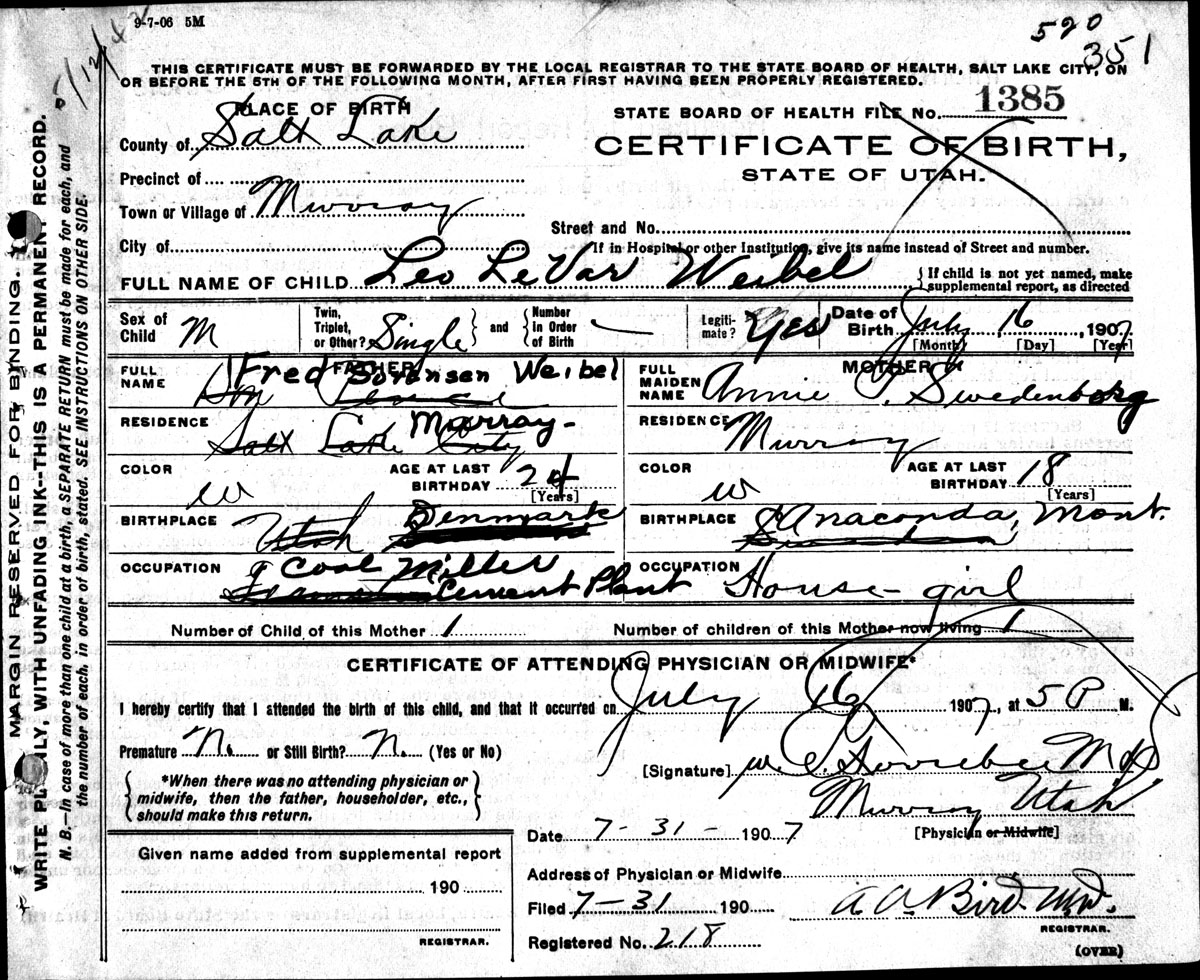 9-7-06 5M
520
351
THIS CERTIFICATE MUST BE FORWARDED BY THE LOCAL REGISTRAR TO THE STATE BOARD OF HEALTH, SALT LAKE CITY, ON
OR BEFORE THE 5TH OF THE FOLLOWING MONTH, AFTER FIRST HAVING BEEN PROPERLY REGISTERED.
PLACE OF BIRTH
STATE BOARD OF HEALTH FILE No. 1385
County of Salt Lake
CERTIFICATE OF BIRTH,
STATE OF UTAH.
Precinct of
Town or Village of Murray
Street and No.
City of
If in Hospital or other Institution, give its name instead of Street and number.
FULL NAME OF CHILD Leo LeVar Weibel { If child is not yet named, make supplemental report, as directed
Sex of Child M
Twin, Triplet, or Other? Single } and { Number in Order of Birth
Legitimate? Yes
Date of Birth July 16, 1907
[Month] [Day] [Year]
FATHER
FULL NAME Fred Sorensen Weibel
RESIDENCE Salt Lake City Murray
COLOR W
AGE AT LAST BIRTHDAY 24
[Years]
BIRTHPLACE Utah Denmark
OCCUPATION Coal Miller
Cement Plant
MOTHER
FULL MAIDEN NAME Annie P. Swedenborg
RESIDENCE Murray
COLOR W
AGE AT LAST BIRTHDAY 18
[Years]
BIRTHPLACE Anaconda, Mont.
OCCUPATION House-girl
Number of Child of this Mother 1
Number of children of this Mother now living 1
CERTIFICATE OF ATTENDING PHYSICIAN OR MIDWIFE*
I hereby certify that I attended the birth of this child, and that it occurred on July 16 1907, at 5 P M.
Premature N. or Still Birth? N. (Yes or No)
[Signature] M D
{ *When there was no attending physician or
midwife, then the father, householder, etc.,
should make this return. }
Murray Utah
[Physician or Midwife]
Date 7-31-1907
Given name added from supplemental report
190
REGISTRAR.
Address of Physician or Midwife
Filed 7-31 190 A A Bird M.D.
REGISTRAR.
Registered No. 218
(OVER)
MARGIN RESERVED FOR BINDING.
WRITE PLAINLY, WITH UNFADING INK--THIS IS A PERMANENT RECORD.
N. B.--In case of more than one child at a birth, a SEPARATE RETURN must be made for each, and
the number of each, in order of birth, stated. SEE INSTRUCTIONS ON OTHER SIDE.